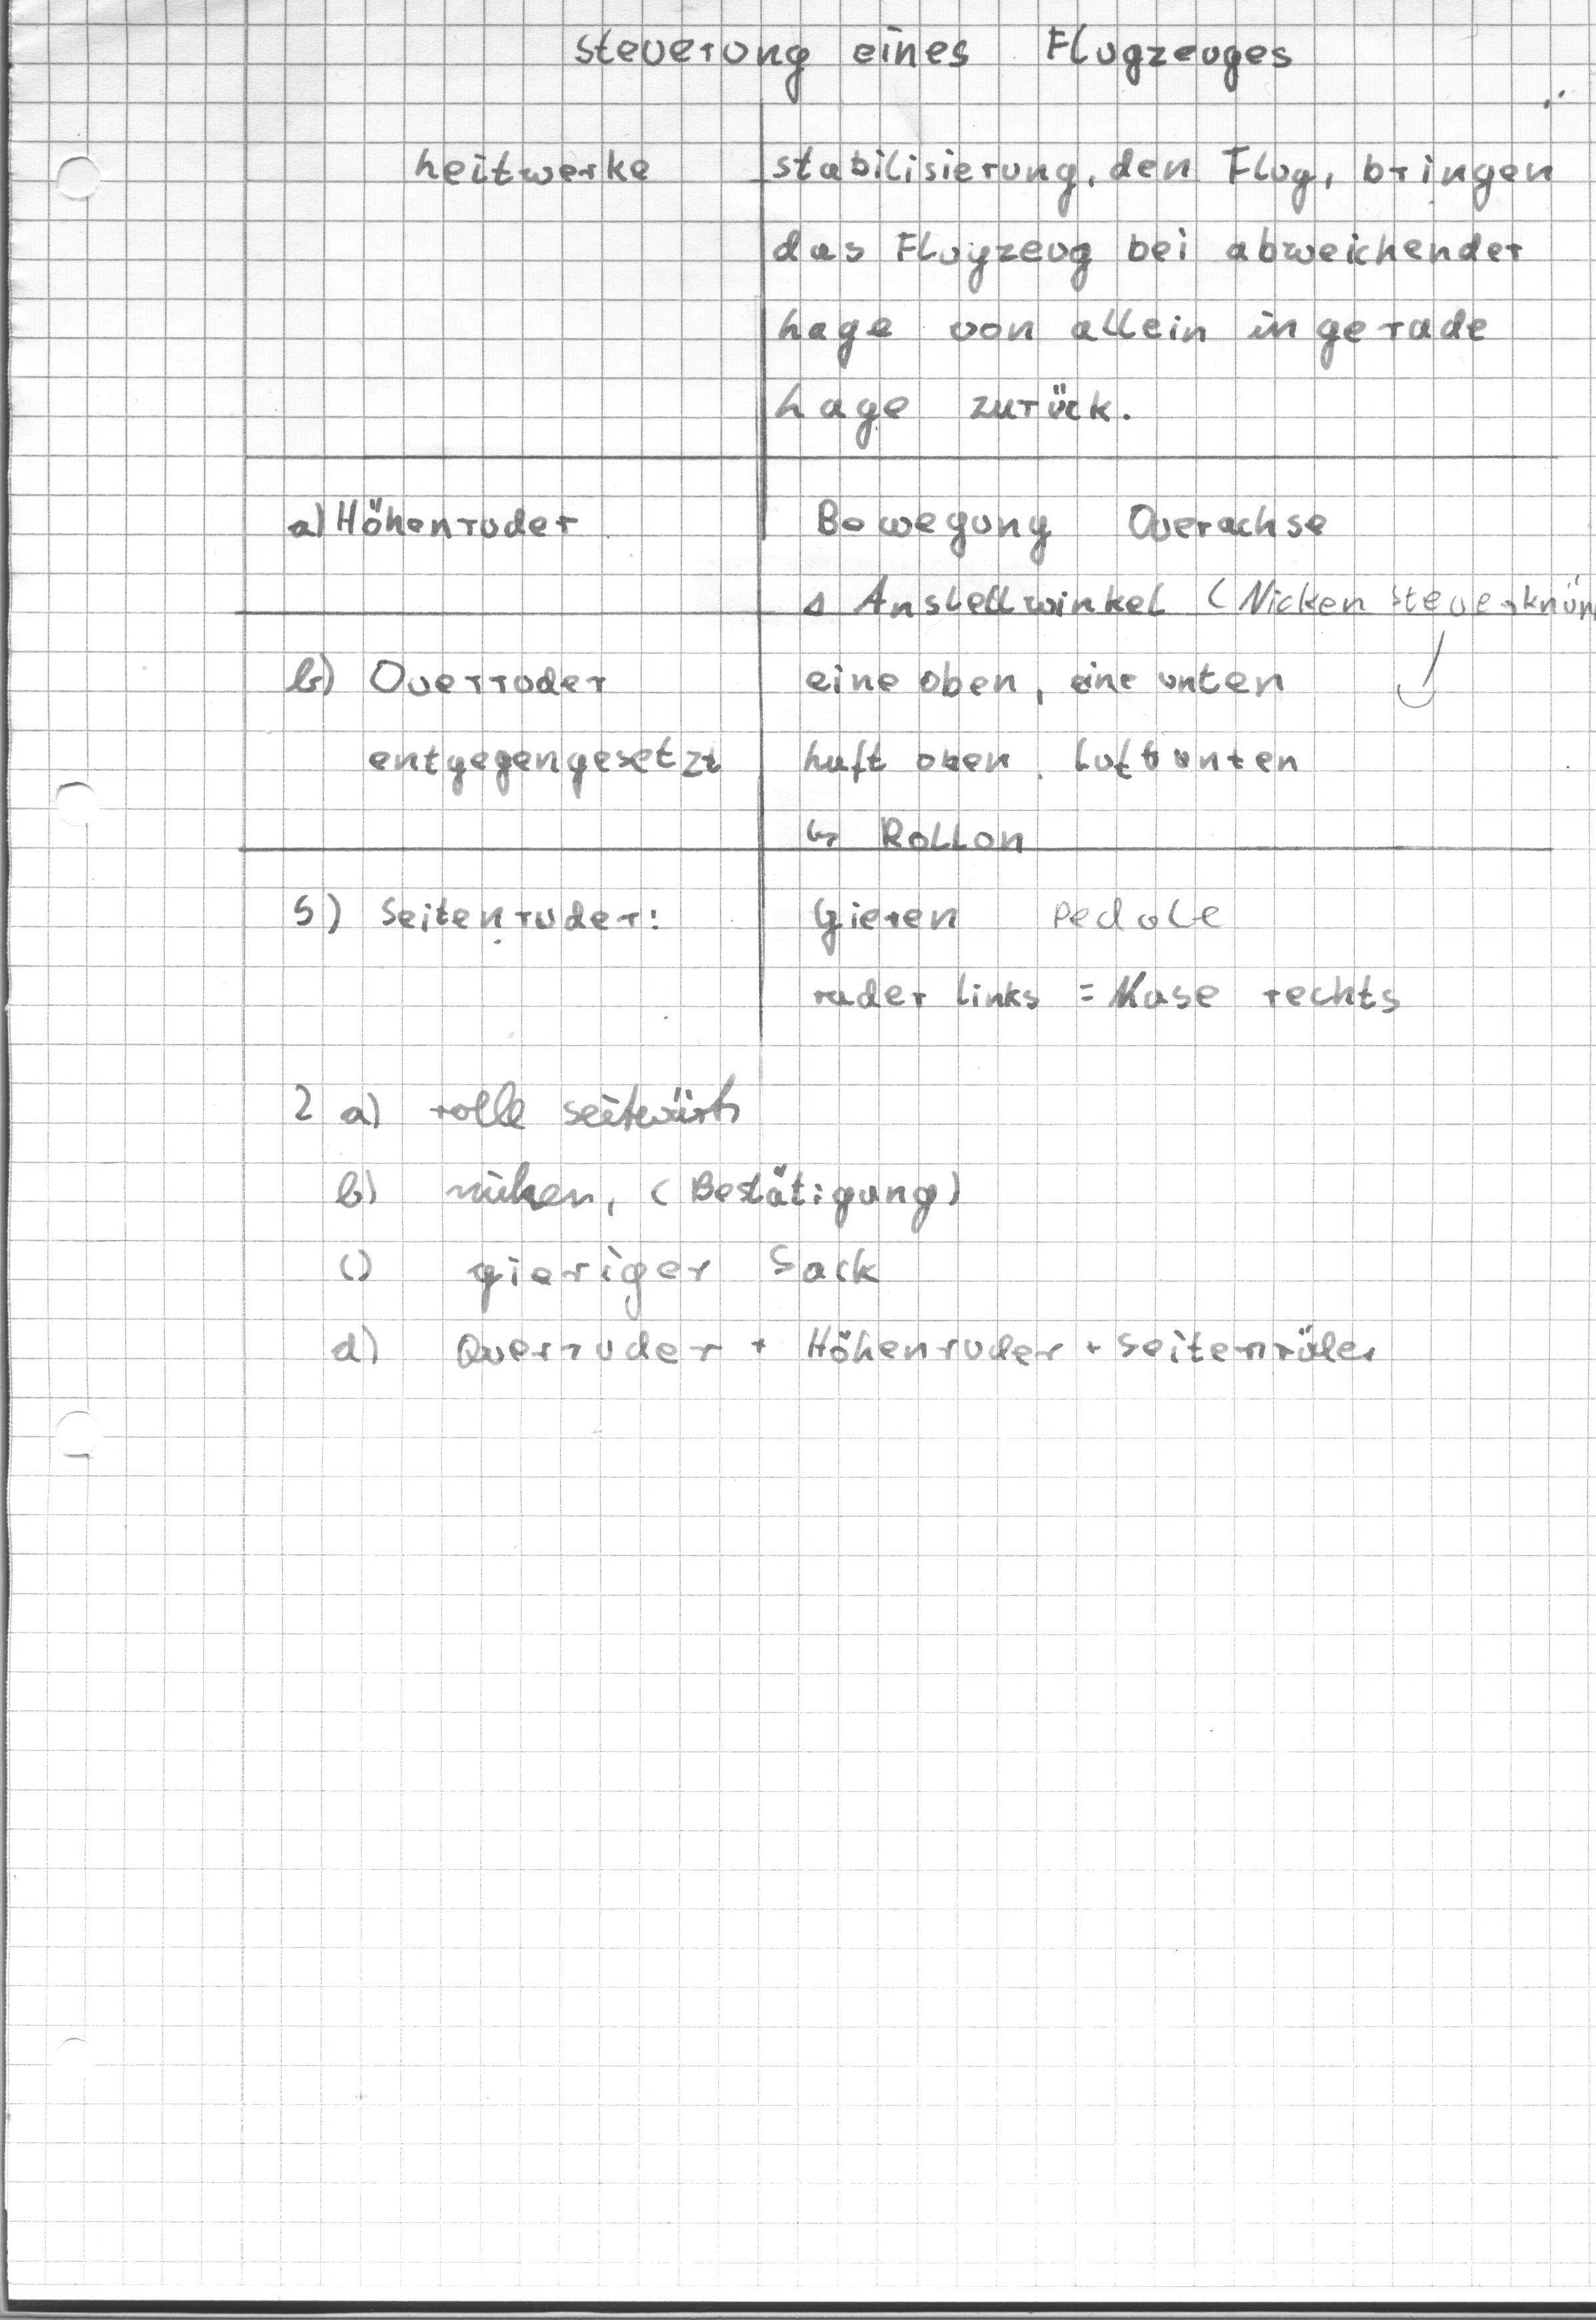 Steuerung eines Flugzeuges
Leitwerke stabilisierung, den Flug, bringen
das Flugzeug bei abweichender
Lage von allein in gerade
Lage zurück.
a) Höhenruder Bewegung Querachse
Δ Anstellwinkel (Nicken
b) Querruder eine oben, eine unten
entgegengesetzt Luft oben, Luft unten
↳ Rollen
S) Seitenruder: Gieren Pedale
ruder links = Nase rechts
2 a) rolle seitwärts
b) nicken, (Bestätigung)
c) gieriger Sack
d) Querruder + Höhenruder + Seitenrüder